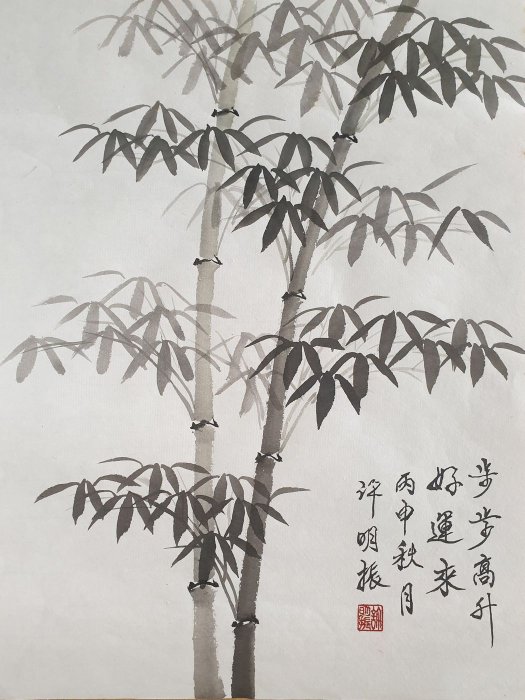 步步高升
好運來
丙申秋月
許明振